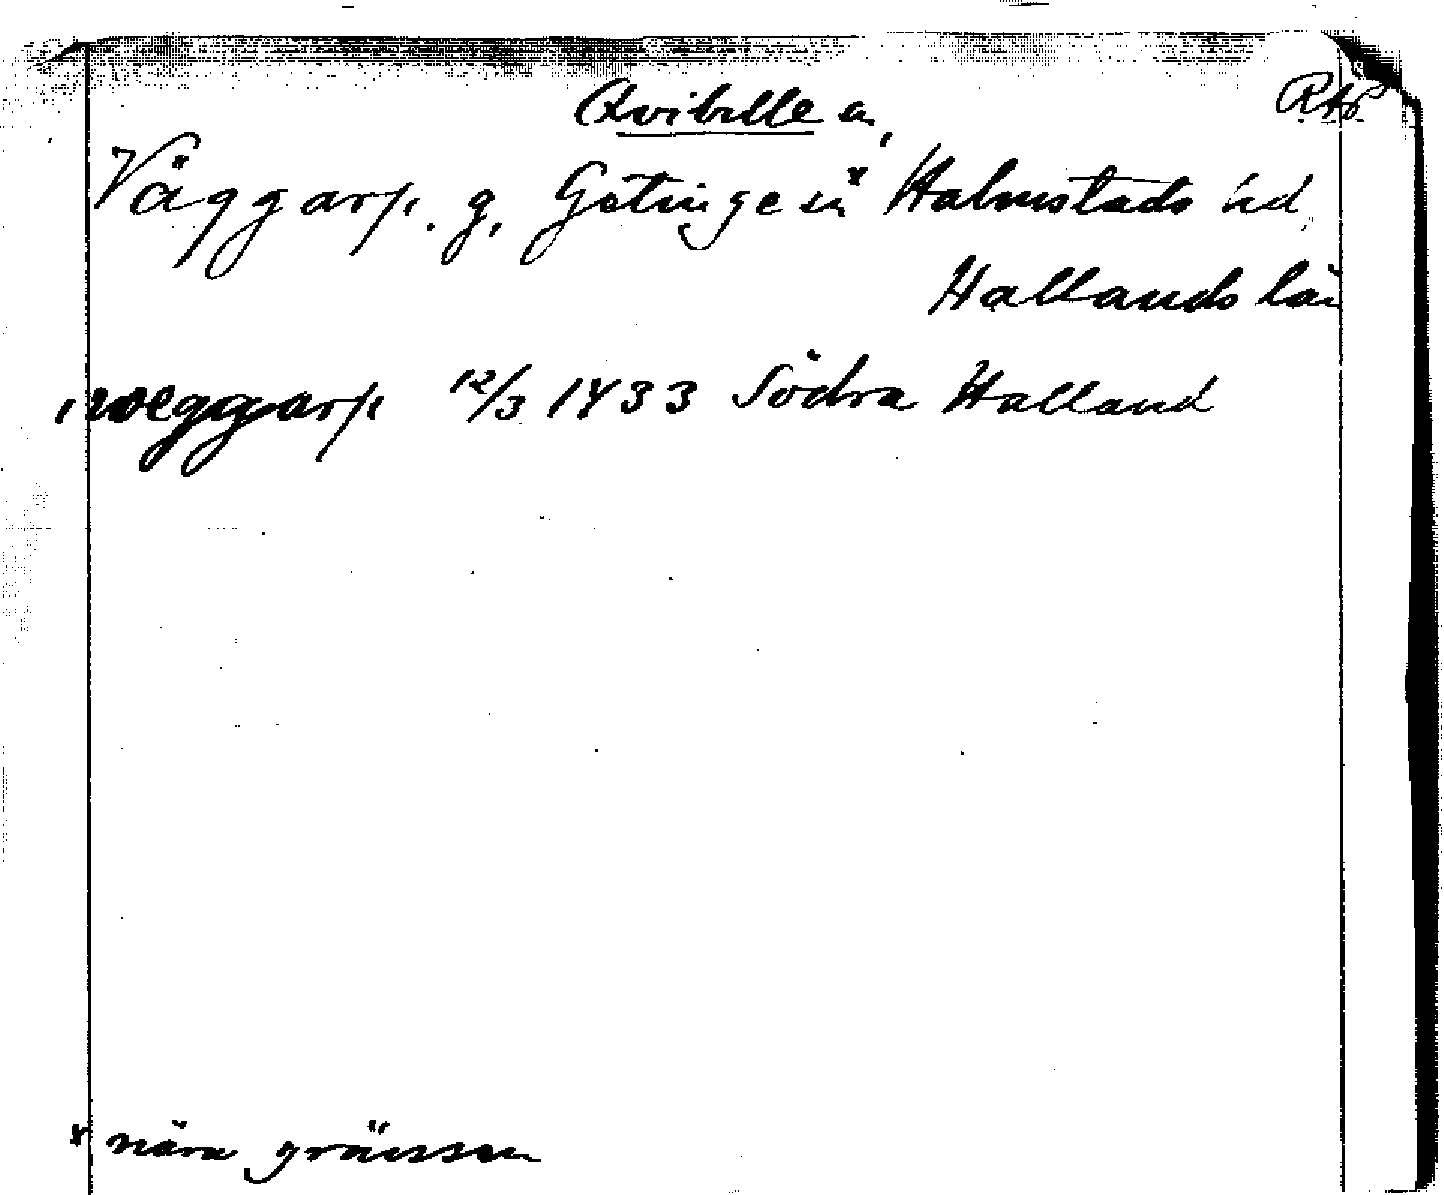 Qvibille sn, RAP.
Väggarp. g. Götinge sn x Halmstads hd,
Hallands län
i wæggarp 12/3 1433 Södra Halland
x nära gränsen